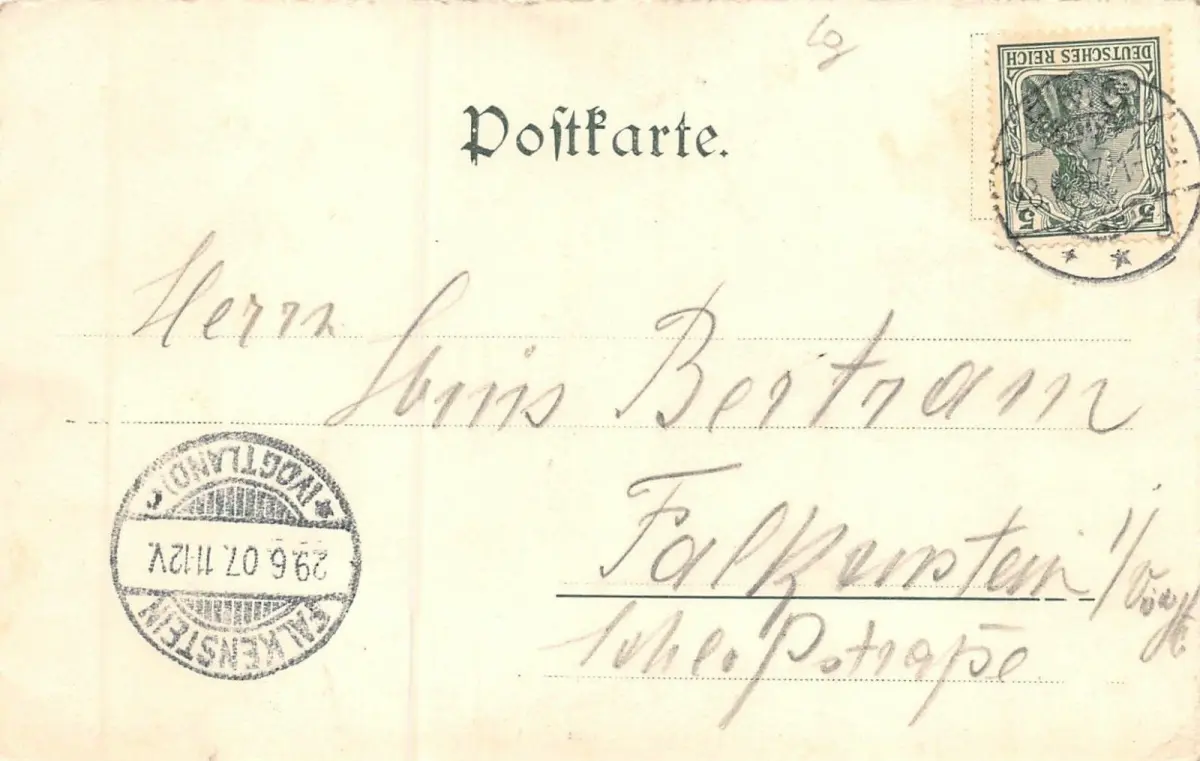 Postkarte.
DEUTSCHES REICH
5 5
Herrn
Louis Bertram
Falkenstein i/Vogtl.
Schloßstraße
FALKENSTEIN
29.6.07. 11-12V.
(VOGTLAND)